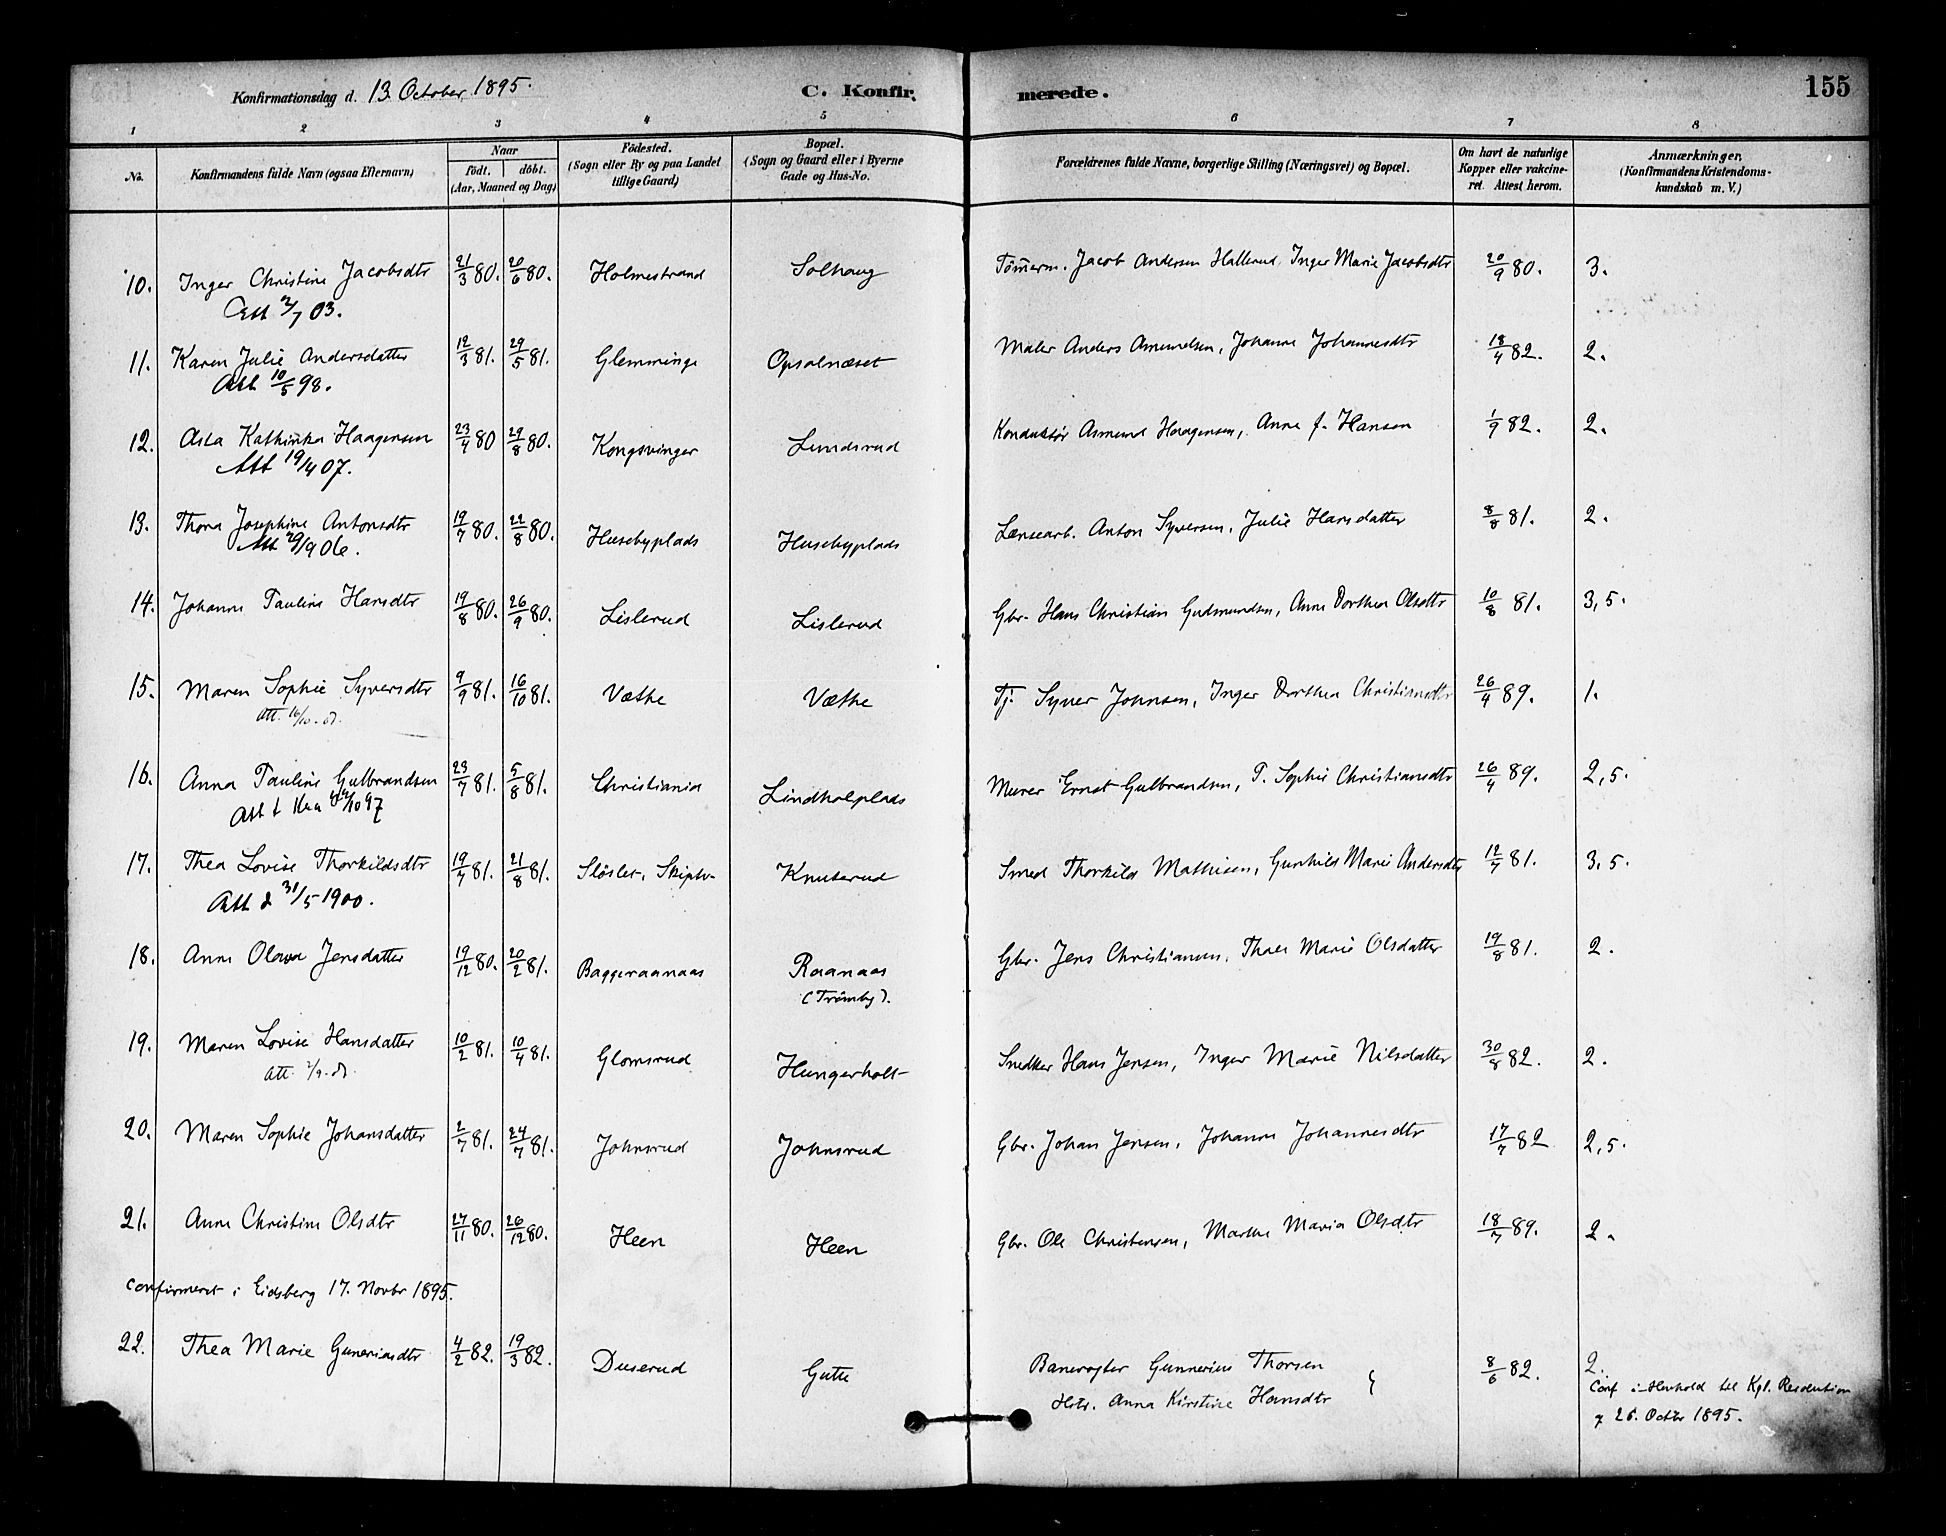 Konfirmationsdag d. 13 October 1895.
C. Konfirmerede.
155
1 2 3 4 5 6 7 8
No. Konfirmandens fulde Navn (ogsaa Efternavn) Naar födt. döbt. (Aar, Maaned og Dag) Födested. (Sogn eller By og paa Landet tillige Gaard) Bopæl. (Sogn og Gaard eller i Byerne Gade og Hus-No. Forældrenes fulde Navne, borgerlige Stilling (Næringsvei) og Bopæl. Om havt de naturlige Kopper eller vakcineret. Attest herom. Anmærkninger. (Konfirmandens Kristendomskundskab m. V.)
10. Inger Christine Jacobsdtr 21/3 80. 20/6 80. Holmestrand Solhaug Tømerm. Jacob Andersen Hallerud, Inger Marie Jacobsdtr 20/9 80. 3.
Att 2/7 03.
11. Karen Julie Andersdatter 12/3 81. 29/5 81. Glemminge Opsalnæset Maler Anders Amundsen, Johanne Johannesdtr 18/4 82. 2.
Att 10/5 98.
12. Asta Kathinka Haagensen 23/4 80 29/8 80. Kongsvinger Lundsrud Konduktör Asmund Haagensen, Anne f. Hansen 1/9 82. 2.
Att 19/4 07.
13. Thora Josephine Antonsdtr 19/7 80. 22/8 80. Husebyplads Husebyplads Lænsearb. Anton Syversen, Julie Hansdatter 8/8 81. 2.
Att 29/9 06.
14. Johanne Pauline Hansdtr 19/8 80. 26/9 80. Lislerud Lislerud Gbr. Hans Christian Gudmundsen, Anne Dorthea Olsdtr 10/8 81. 3,5.
15. Maren Sophie Syversdtr 9/9 81. 16/10 81. Væthe Væthe Tj. Syver Johnsen, Inger Dorthea Christiansdtr 26/4 89. 1.
Att. 16/10.
16. Anna Pauline Gulbrandsen 23/7 81. 5/8 81. Christiania Lindholplads Murer Ernst Gulbrandsen, P. Sophie Christiansdtr 26/4 89. 2,5.
Att t Kra /10 97
17. Thea Lovise Thorkildsdtr 19/7 81. 21/8 81. Slöslet, Skiptv. Knuserud Smed Thorkild Mathisen, Gunhild Marie Andersdtr 12/7 81. 3,5.
Att d 31/5 1900.
18. Anne Olava Jensdatter 19/12 80. 20/2 81. Baggeraanaas Raanaas Gbr. Jens Christiansen, Thale Marie Olsdatter 19/8 81. 2.
(Trömby).
19. Maren Lovise Hansdatter 10/2 81. 10/4 81. Glomsrud Hungerholt Snedker Hans Jensen, Inger Marie Nilsdatter 30/8 82. 2.
Att.
20. Maren Sophie Johansdatter 2/7 81. 24/7 81. Johnsrud Johnsrud Gbr. Johan Jensen, Johanne Johannesdtr 17/7 82 2,5.
21. Anne Christine Olsdtr 27/11 80. 26/12 80. Heen Heen Gbr. Ole Christensen, Marthe Maria Olsdtr 18/7 89. 2.
confirmeret i Eidsberg 17. Novbr 1895.
22. Thea Marie Guneriusdtr 4/2 82. 19/3 82. Duserud Gutu Banevogter Gunnerius Thorsen 8/6 82. 2.
Hstr. Anna Kirstine Hansdtr Conf. i Henhold til Kgl. Resolution
26. Octbr 1895.